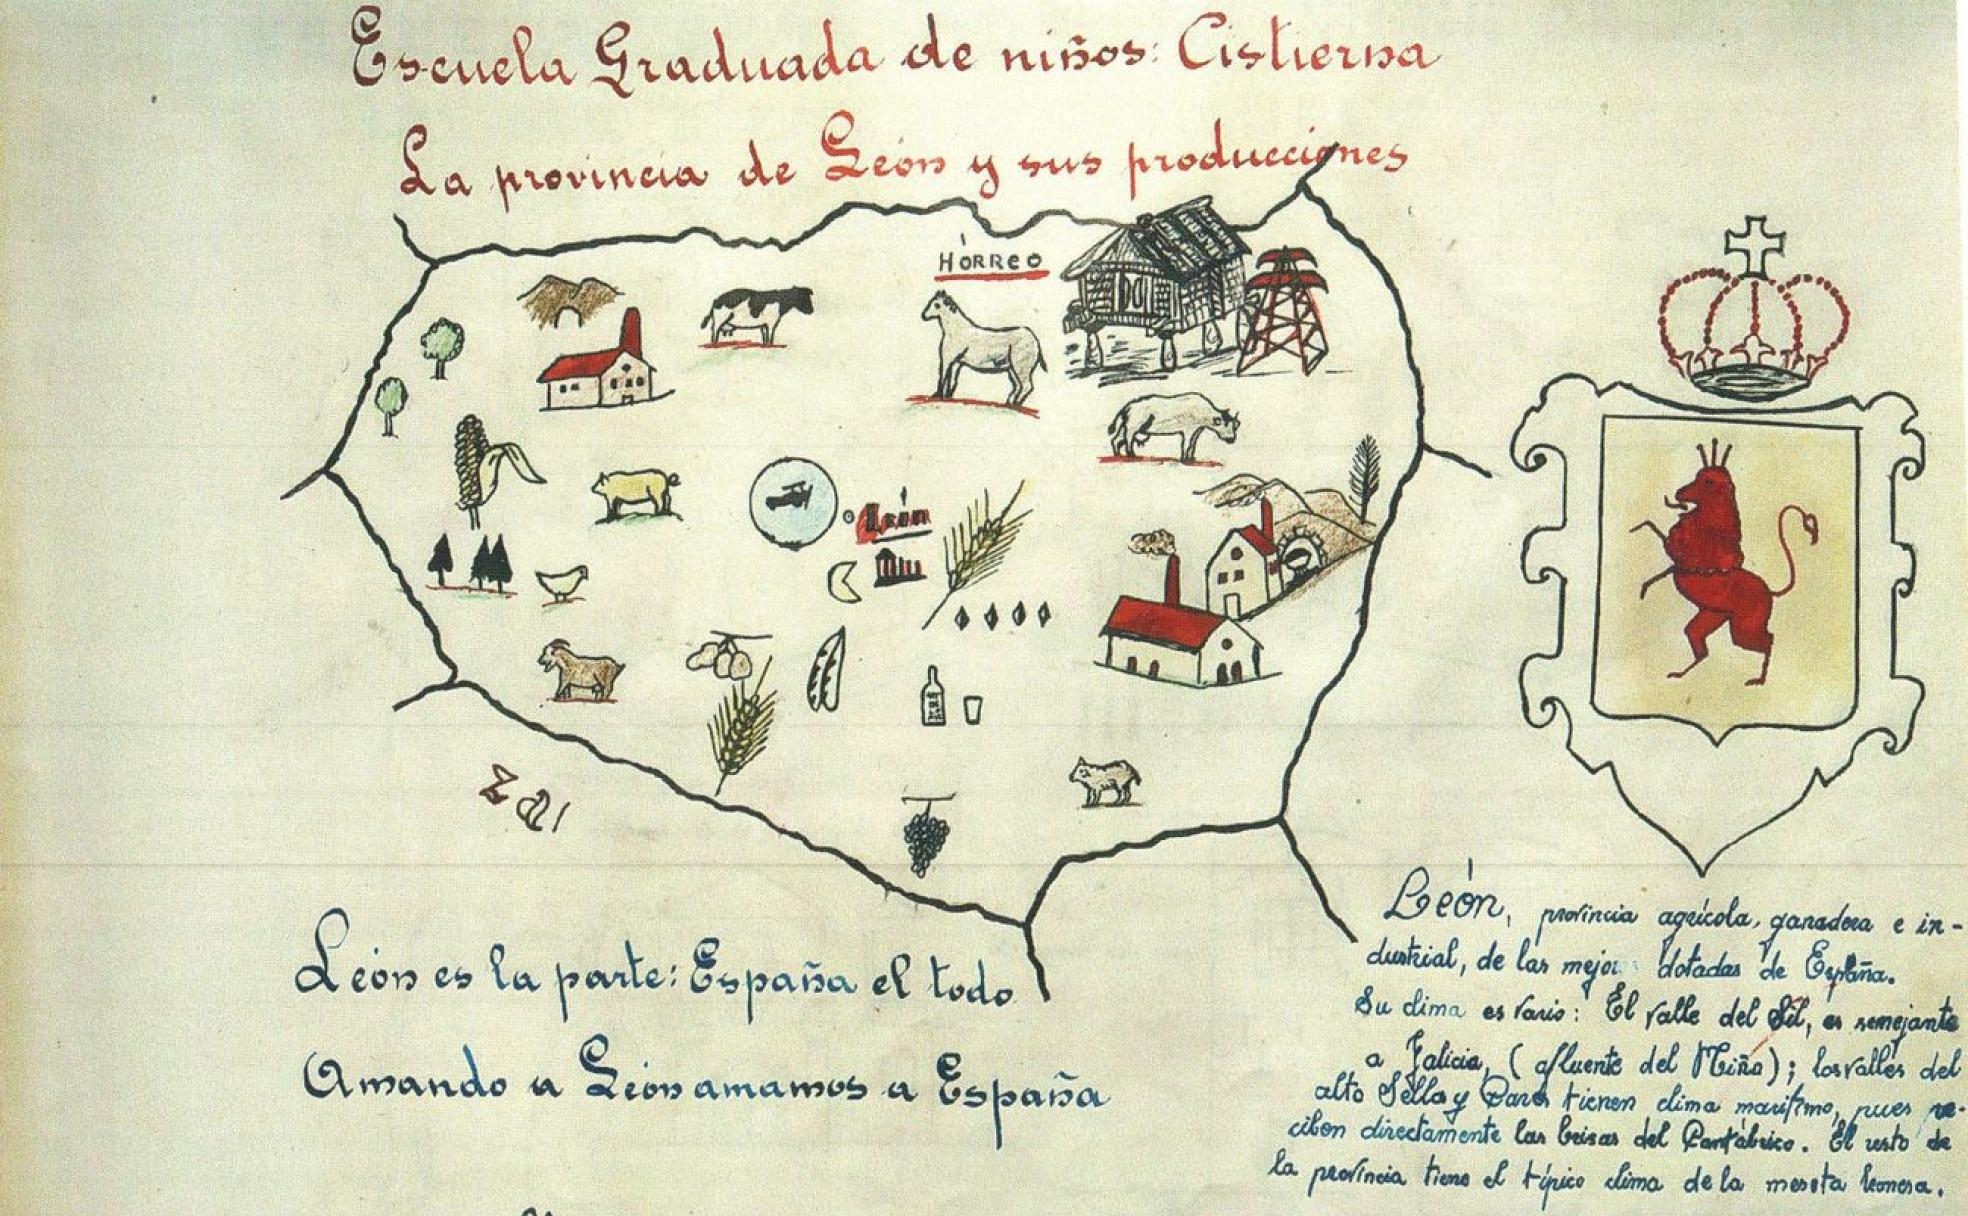 Escuela Graduada de niños: Cistierna
La provincia de León y sus producciones
HÓRREO
León
León es la parte: España el todo
Amando a León amamos a España
León, provincia agrícola, ganadera e in-
dustrial, de las mejores dotadas de España.
Su clima es vario: El valle del Sil, es semejante
a Galicia, (afluente del Miño); los valles del
alto Sella y Cares tienen clima marítimo, pues re-
ciben directamente las brisas del Cantábrico. El resto de
la provincia tiene el típico clima de la meseta leonesa.